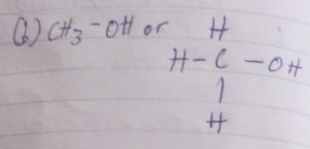 (b) CH3-OH or H
H-C-OH
|
H